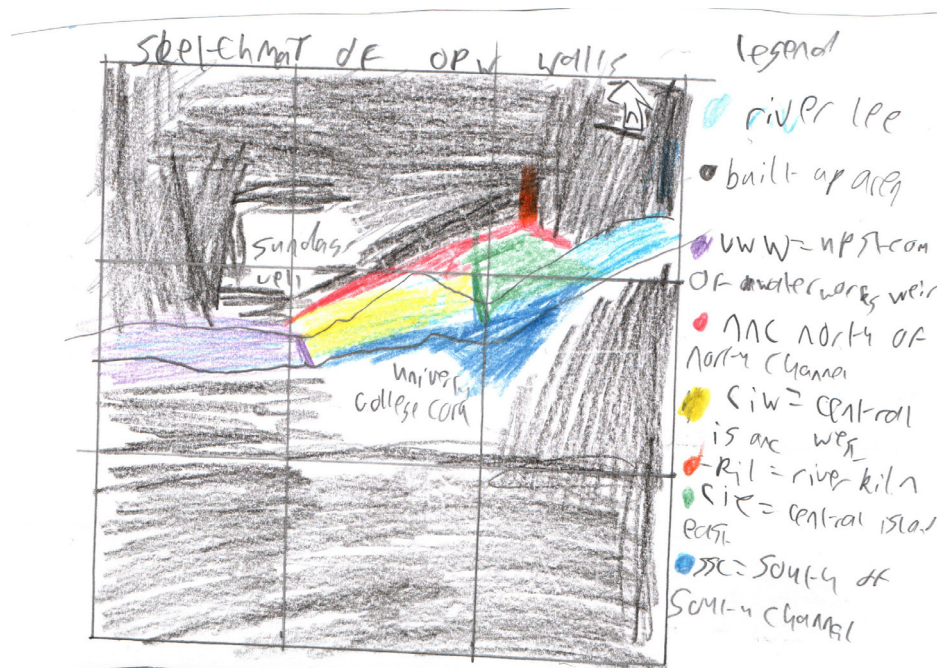 Skelchmap of opw walls
n
sundas
well
univers
college cork
legend
river lee
built up area
uww = upstream
of waterworks weir
nnc north of
north channel
ciw = central
island wes
-kil = river kiln
cie = central island
east
ssc = south of
south channel